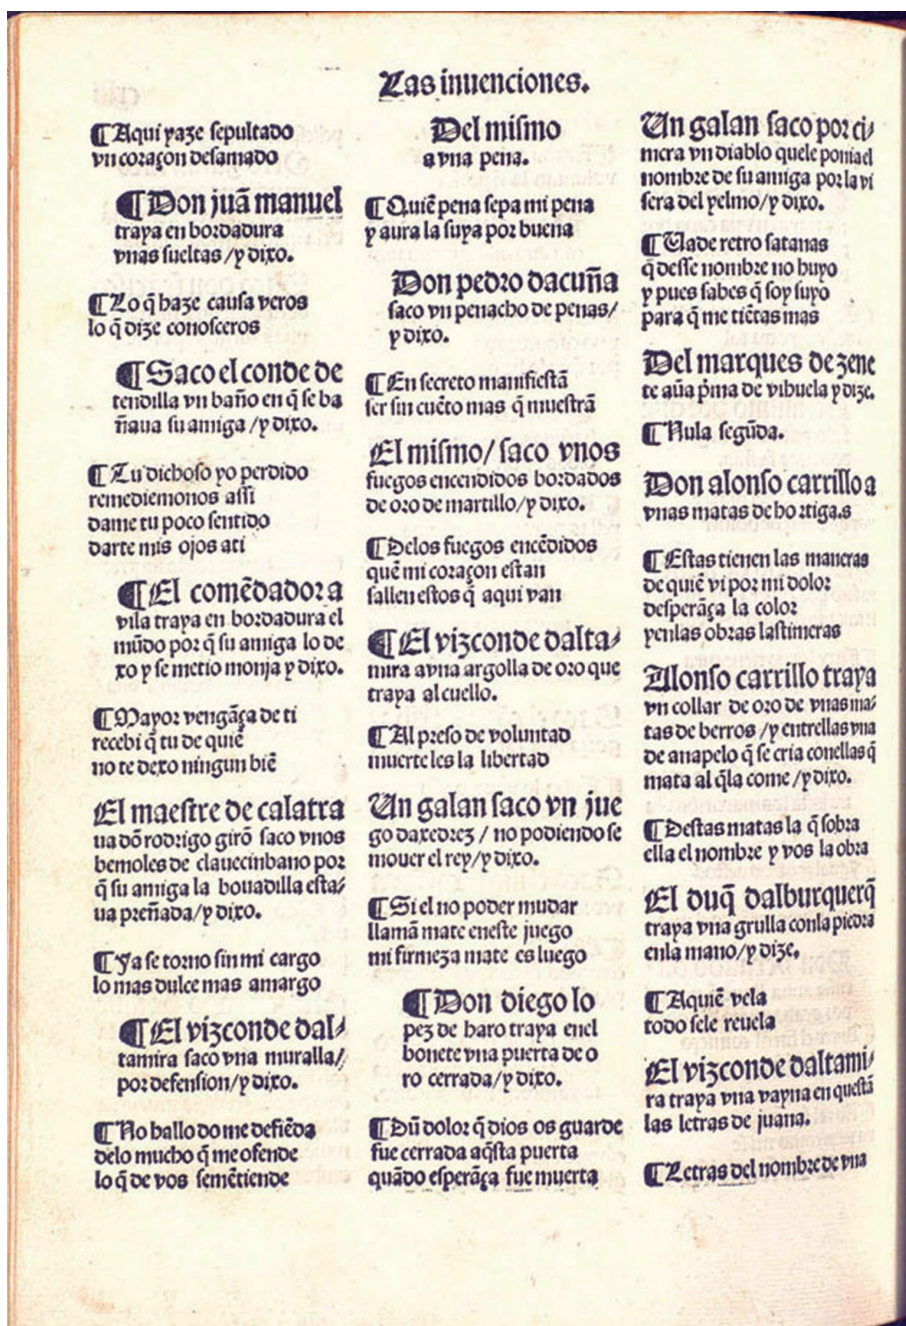 Las inuenciones.
¶Aqui yaze sepultado
vn coraçon desamado
¶Don juã manuel
traya en bordadura
vnas sueltas/y dixo.
¶Lo q̃ haze causa veros
lo q̃ dize conosceros
¶Saco el conde de
tendilla vn baño en q̃ se ba
ñaua su amiga/y dixo.
¶Tu dichoso yo perdido
remediemonos assi
dame tu poco sentido
darte mis ojos ati
¶El comẽdador a
vila traya en bordadura el
mũdo por q̃ su amiga lo de
xo y se metio monja y dixo.
¶Mayor vengãça de ti
recebi q̃ tu de quiẽ
no te dexo ningun biẽ
El maestre de calatra
ua dõ rodrigo girõ saco vnos
bemoles de clauecinbano por
q̃ su amiga la bouadilla esta/
ua preñada/y dixo.
¶Ya se torno sin mi cargo
lo mas dulce mas amargo
¶El vizconde dal/
tamira saco vna muralla/
por defension/y dixo.
¶No hallo do me defiẽda
delo mucho q̃ me ofende
lo q̃ de vos semẽtiende
Del mismo
a vna pena.
¶Quiẽ pena sepa mi pena
y aura la suya por buena
Don pedro dacuña
saco vn penacho de penas/
y dixo.
¶En secreto manifiestã
ser sin cuẽto mas q̃ muestrã
El mismo/saco vnos
fuegos encendidos bordados
de oro de martillo/y dixo.
¶Delos fuegos encẽdidos
quẽ mi coraçon estan
sallen estos q̃ aqui van
¶El vizconde dalta/
mira avna argolla de oro que
traya al cuello.
¶Al preso de voluntad
muerte les la libertad
Un galan saco vn jue
go daxedrez/no podiendo se
mouer el rey/y dixo.
¶Si el no poder mudar
llamã mate eneste juego
mi firmeza mate es luego
¶Don diego lo
pez de haro traya enel
bonete vna puerta de o
ro cerrada/y dixo.
¶Dũ dolor q̃ dios os guarde
fue cerrada aq̃sta puerta
quãdo esperãça fue muerta
Un galan saco por ci/
mera vn diablo quele ponia el
nombre de su amiga por la vi
sera del yelmo/y dixo.
¶Uade retro satanas
q̃ desse nombre no huyo
y pues sabes q̃ soy suyo
para q̃ me tiẽtas mas
Del marques de zene
te aũa p̃ma de vihuela y dize.
¶Nula segũda.
Don alonso carrillo a
vnas matas de hortiga.s
¶Estas tienen las maneras
de quiẽ vi por mi dolor
desperãça la color
yenlas obras lastimeras
Alonso carrillo traya
vn collar de oro de vnas ma/
tas de berros/y entrellas vna
de anapelo q̃ se cria conellas q̃
mata al q̃la come/y dixo.
¶Destas matas la q̃ sobra
ella el nombre y vos la obra
El duq̃ dalburquerq̃
traya vna grulla conla piedra
enla mano/y dize.
¶Aquiẽ vela
todo sele reuela
El vizconde daltami/
ra traya vna vayna en questã
las letras de juana.
¶Letras del nombre de vna